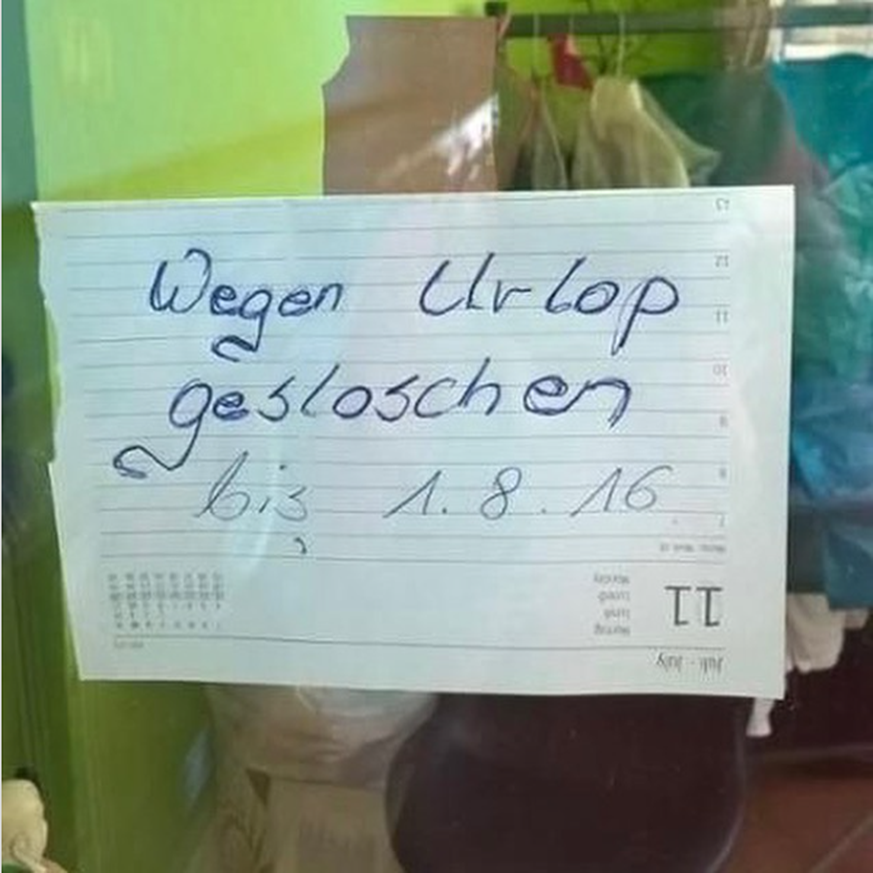 Wegen Urlop
gesloschen
bis 1.8.16
13
12
11
10
9
8
7
Monday
Lunedì
Lundi
Montag
11
Juli - July